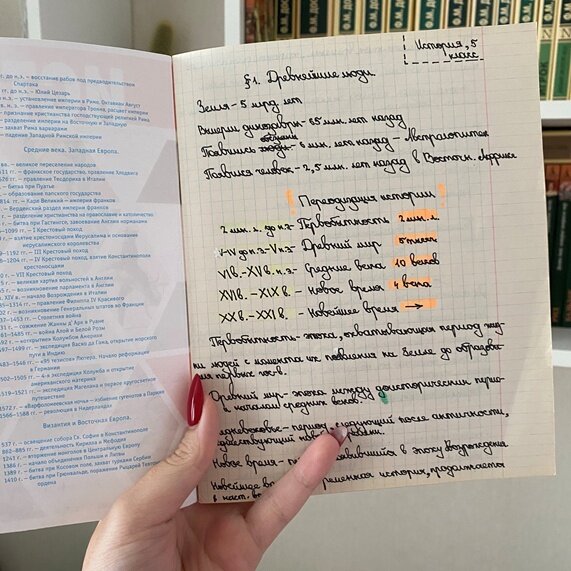 гг. до н.э. — восстание рабов под предводительством
Спартака
гг. до н.э. — Юлий Цезарь
н.э. — установление империи в Риме. Октавиан Август
н. э. — правление императора Трояна, расцвет империи
— признание христианства господствующей религией Рима
— разделение империи на Восточную и Западную
— захват Рима варварами
— падение Западной Римской империи
Средние века. Западная Европа.
вв. — великое переселение народов
— франкское государство, правление Хлодвига
526 гг. — правление Теодориха в Италии
— битва при Пуатье
— образование папского государства
814 гг. — Карл Великий — император франков
— Верденский раздел империи франков
— разделение христианства на православие и католичество
— битва при Гастингсе, завоевание Англии норманнами
1099 гг. — I Крестовый поход
— взятие крестоносцами Иерусалима и основание
иерусалимского королевства
1192 гг. — III Крестовый поход
1204 гг. — IV Крестовый поход, взятие Константинополя
крестоносцами
— VII Крестовый поход
— великая хартия вольностей в Англии
— возникновение парламента в Англии
XIV в. — начало Возрождения в Италии
1314 гг. — правление Филиппа IV Красивого
— возникновение Генеральных штатов во Франции
1453 гг. — Столетняя война
— сожжение Жанны д'Арк в Руане
1485 гг. — война Алой и Белой Розы
— открытие Колумбом Америки
1499 гг. — экспедиция Васко да Гама, открытие морского
пути в Индию
1546 гг. — «95 тезисов» Лютера. Начало реформации
в Германии
1502–1505 гг. — 4-я экспедиция Колумба и открытие
американского материка
1519–1521 гг. — экспедиция Магеллана и первое кругосветное
путешествие
1572 г. — «Варфоломеевская ночь» — избиение гугенотов в Париже
1566–1588 гг. — революция в Нидерландах
Византия и Восточная Европа.
537 г. — освящение собора Св. Софии в Константинополе
862–885 гг. — деятельность Кирилла и Мефодия
1241 г. — вторжение монголов в Центральную Европу
1386 г. — начало объединения Польши и Литвы
1389 г. — битва при Косовом поле, захват турками Сербии
1410 г. — битва при Грюнвальде, поражение Рыцарей Тевтонского
ордена
История, 5
класс
§1. Древнейшие люди.
Земля - 5 млрд лет
Вымерли динозавры - 65 млн. лет назад
Появились обезьяны 6 млн. лет назад - австралопитек
Появился человек - 2,5 млн. лет назад в Восточн. Африке
! Периодизация истории !
2 млн. л. до н.э - Первобытность 2 млн. л.
IV до н.э - V н.э Древний мир 5 тыс.л
VI в. - XV в. н.э. - Средние века 10 веков
XVI в. - XIX в. - Новое время 4 века
XX в. - XXI в. - Новейшее время →
Первобытность - эпоха, охватывающая период жиз-
ни людей с момента их появления на Земле до образова-
ния первых гос-в.
Древний мир - эпоха между доисторическим перио-
и началом средних веков.
Средневековье - период, следующий после античности,
Новое время - в эпоху Возрождения
Новейшее временная история, продолжается
в наст.